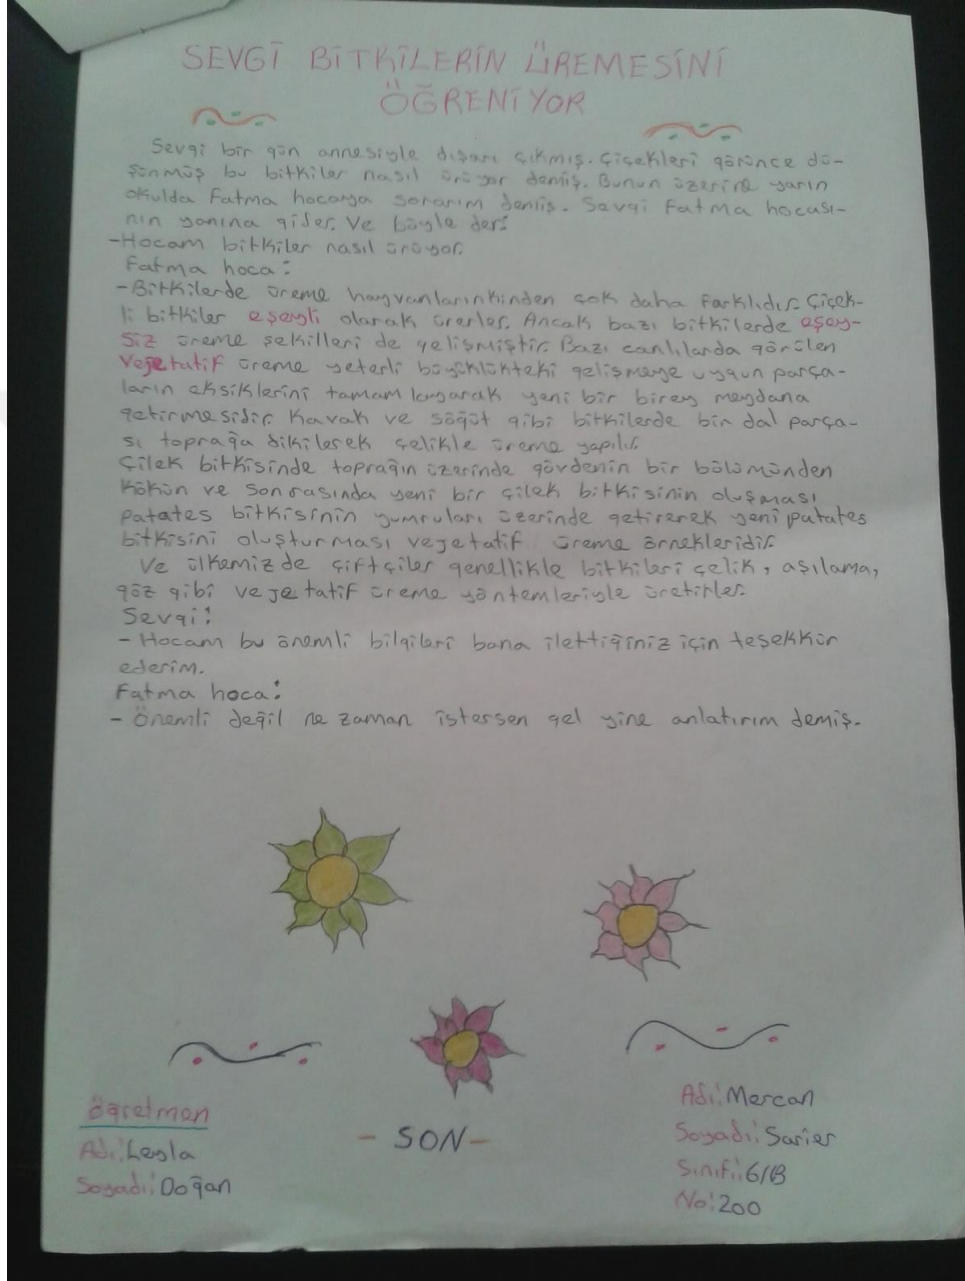 SEVGİ BİTKİLERİN ÜREMESİNİ
ÖĞRENİYOR
Sevgi bir gün annesiyle dışarı çıkmış. Çiçekleri görünce dü-
şünmüş bu bitkiler nasıl ürüyor demiş. Bunun üzerine yarın
okulda Fatma hocaya sorarım demiş. Sevgi Fatma hocası-
nın yanına gider. Ve böyle der:
-Hocam bitkiler nasıl ürüyor.
Fatma hoca:
-Bitkilerde üreme hayvanlarınkinden çok daha farklıdır. Çiçek-
li bitkiler eşeyli olarak ürerler. Ancak bazı bitkilerde eşey-
siz üreme şekilleri de gelişmiştir. Bazı canlılarda görülen
vejetatif üreme yeterli büyüklükteki gelişmeye uygun parça-
ların eksiklerini tamamlayarak yeni bir birey meydana
getirmesidir. Kavak ve söğüt gibi bitkilerde bir dal parça-
sı toprağa dikilerek çelikle üreme yapılır.
Çilek bitkisinde toprağın üzerinde gövdenin bir bölümünden
kökün ve sonrasında yeni bir çilek bitkisinin oluşması
patates bitkisinin yumruları üzerinde getirerek yeni patates
bitkisini oluşturması vejetatif üreme örnekleridir.
Ve ülkemizde çiftçiler genellikle bitkileri çelik, aşılama,
göz gibi vejetatif üreme yöntemleriyle üretirler.
Sevgi:
- Hocam bu önemli bilgileri bana ilettiğiniz için teşekkür
ederim.
Fatma hoca:
- Önemli değil ne zaman istersen gel yine anlatırım demiş.
Öğretmen
Adı: Leyla
Soyadı: Doğan
- SON -
Adı: Mercan
Soyadı: Sarier
Sınıfı: 6/B
No: 200